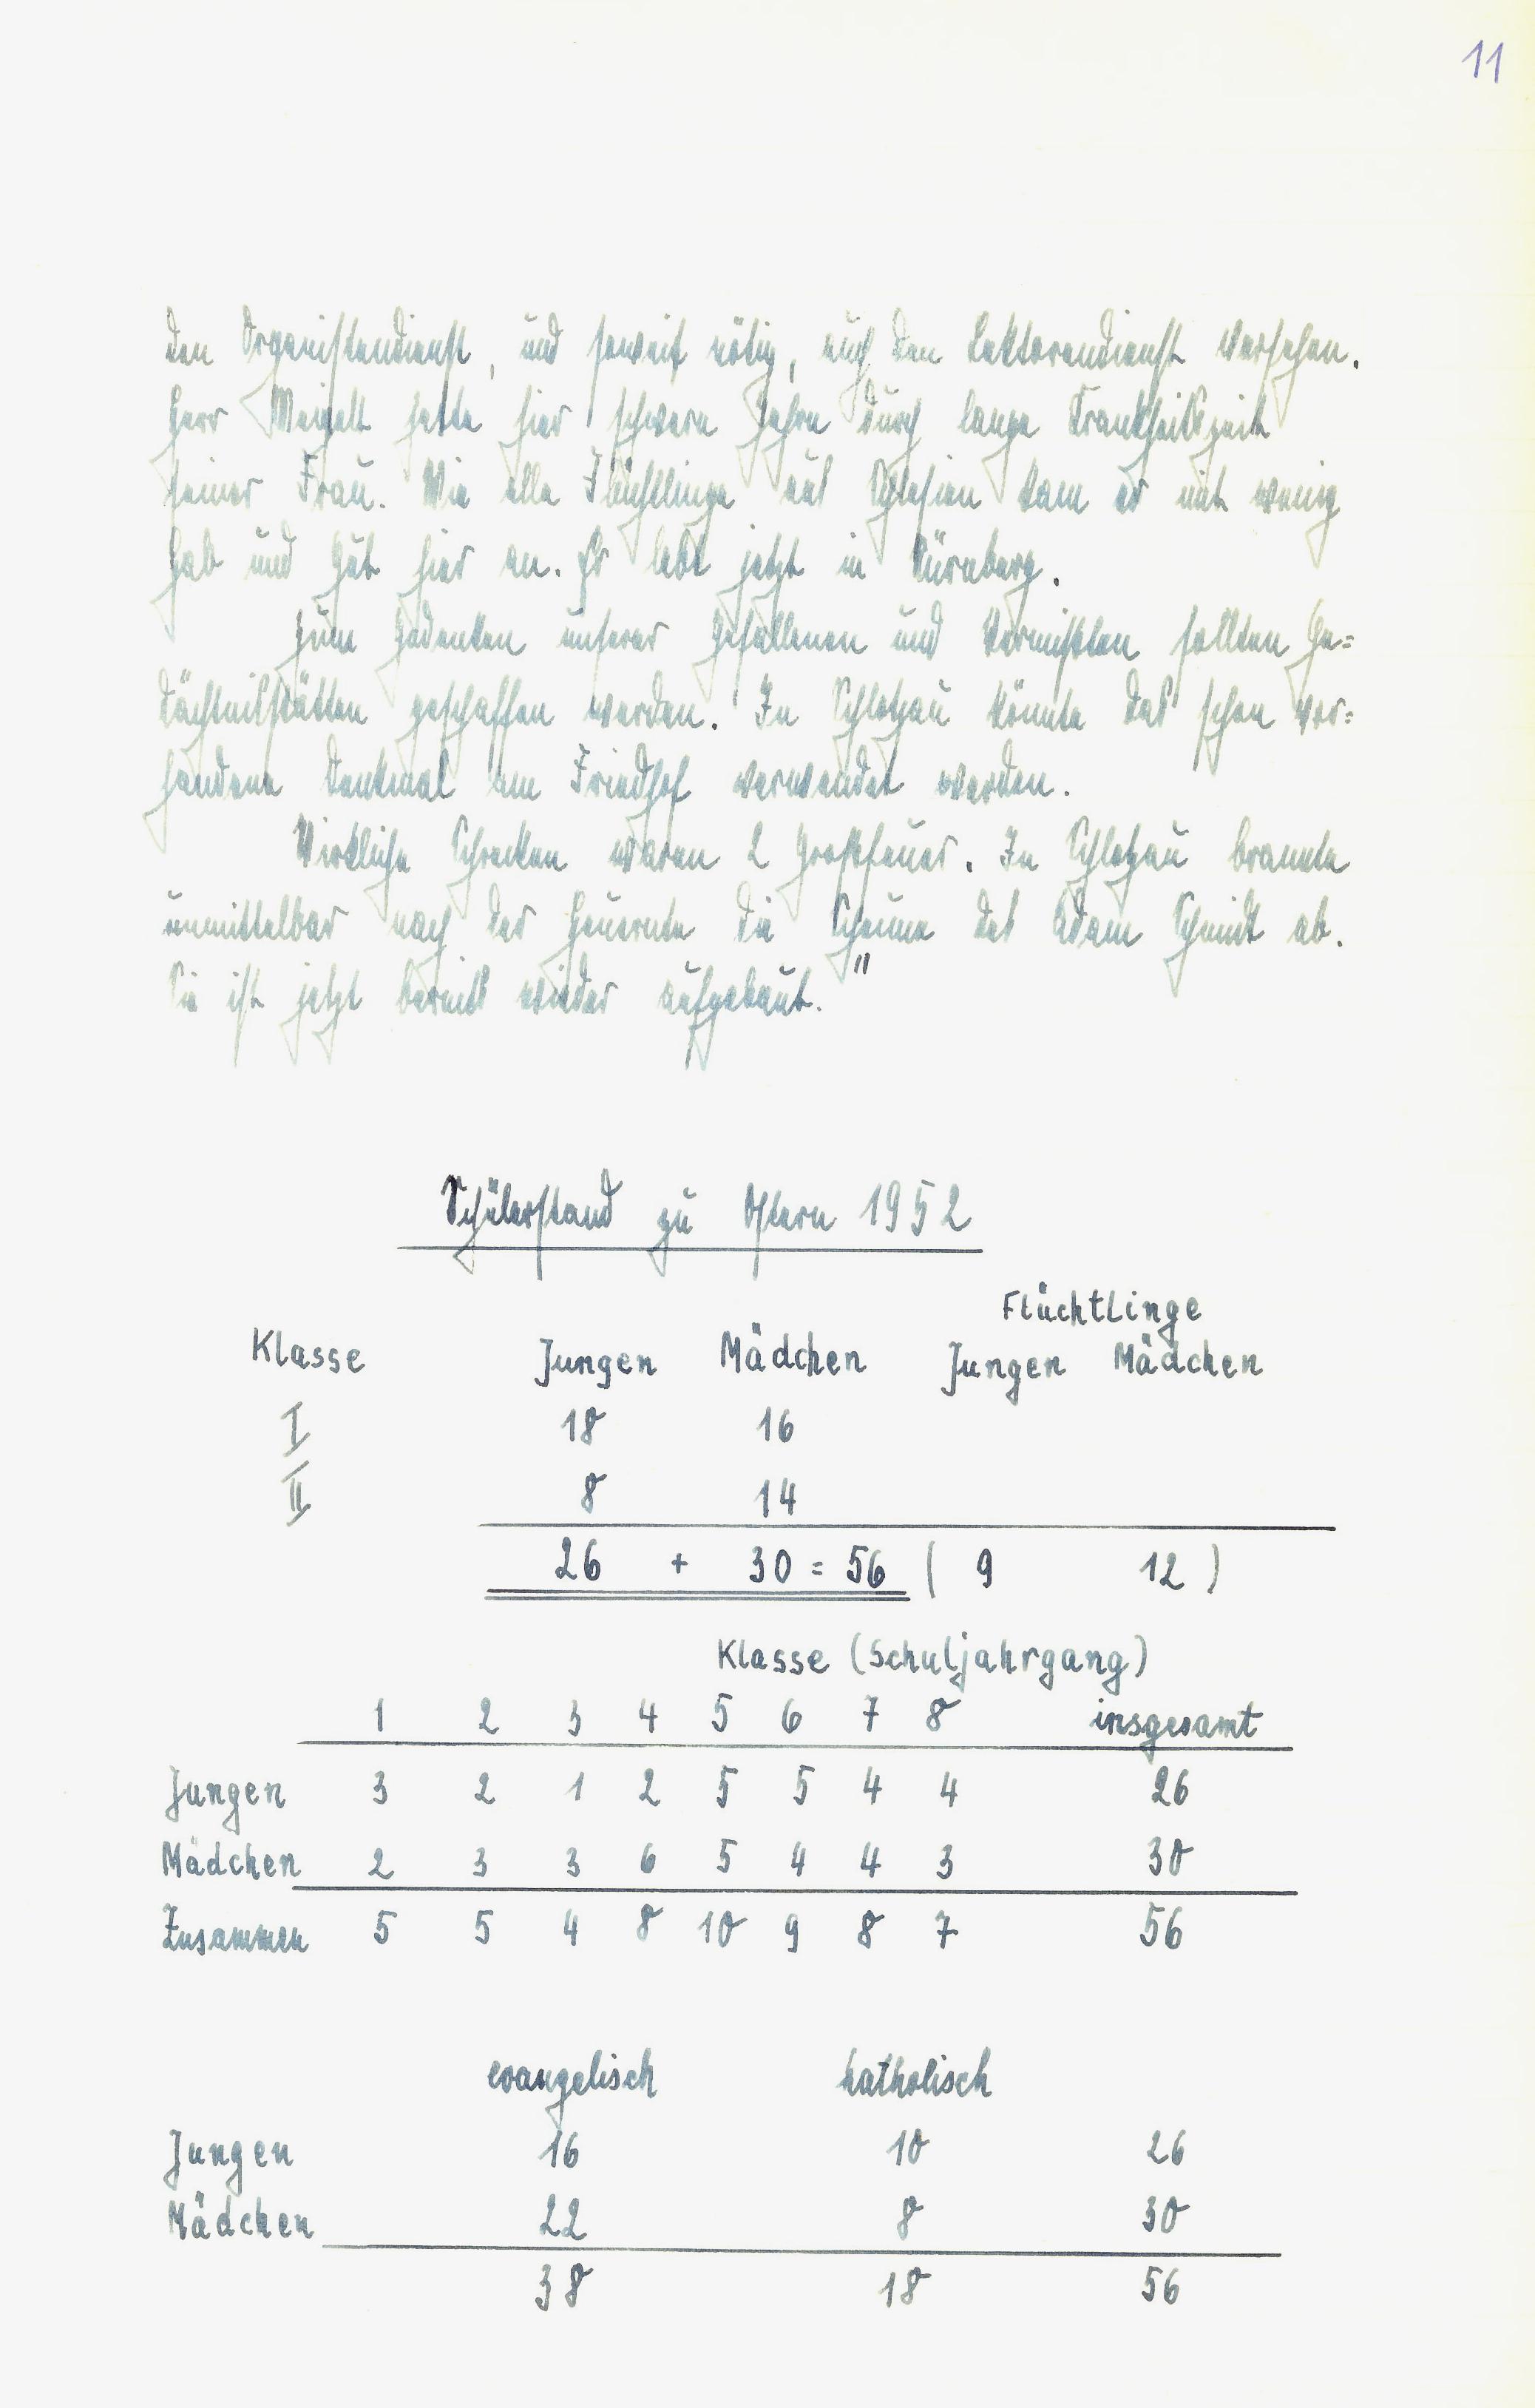 11
den Organistendienst, und soweit nötig, auch den Lektorendienst versehen.
Herr Weigelt hatte hier schwere Jahre durch lange Krankheitszeit
seiner Frau. Wie alle Flüchtlinge aus Schlesien kam er mit wenig
Hab und Gut hier an. Er lebt jetzt in Nürnberg.
Zum Gedenken unserer Gefallenen und Vermißten sollten Ge=
dächtnisstätten geschaffen werden. In Schletzau könnte das schon vor=
handene Denkmal am Friedhof verwendet werden.
Wirkliche Schrecken waren 2 Großfeuer. In Schletzau brannte
unmittelbar nach der Heuernte die Scheune des Adam Schmidt ab.
Sie ist jetzt bereits wieder aufgebaut."
Schülerstand zu Ostern 1952
Flüchtlinge
Klasse Jungen Mädchen Jungen Mädchen
I 18 16
II 8 14
26 + 30 = 56 ( 9 12 )
Klasse (Schuljahrgang)
1 2 3 4 5 6 7 8 insgesamt
Jungen 3 2 1 2 5 5 4 4 26
Mädchen 2 3 3 6 5 4 4 3 30
Zusammen 5 5 4 8 10 9 8 7 56
evangelisch katholisch
Jungen 16 10 26
Mädchen 22 8 30
38 18 56